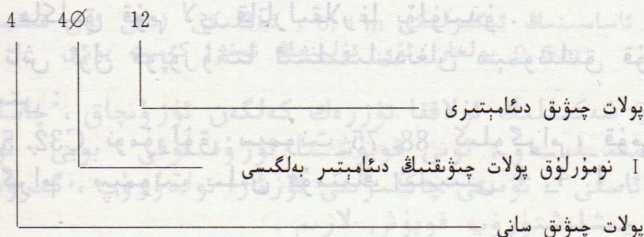 4 4∅ 12
پولات چىۋىق دىئامېتىرى
I نومۇرلۇق پولات چىۋىقنىڭ دىئامېتىر بەلگىسى
پولات چىۋىق سانى